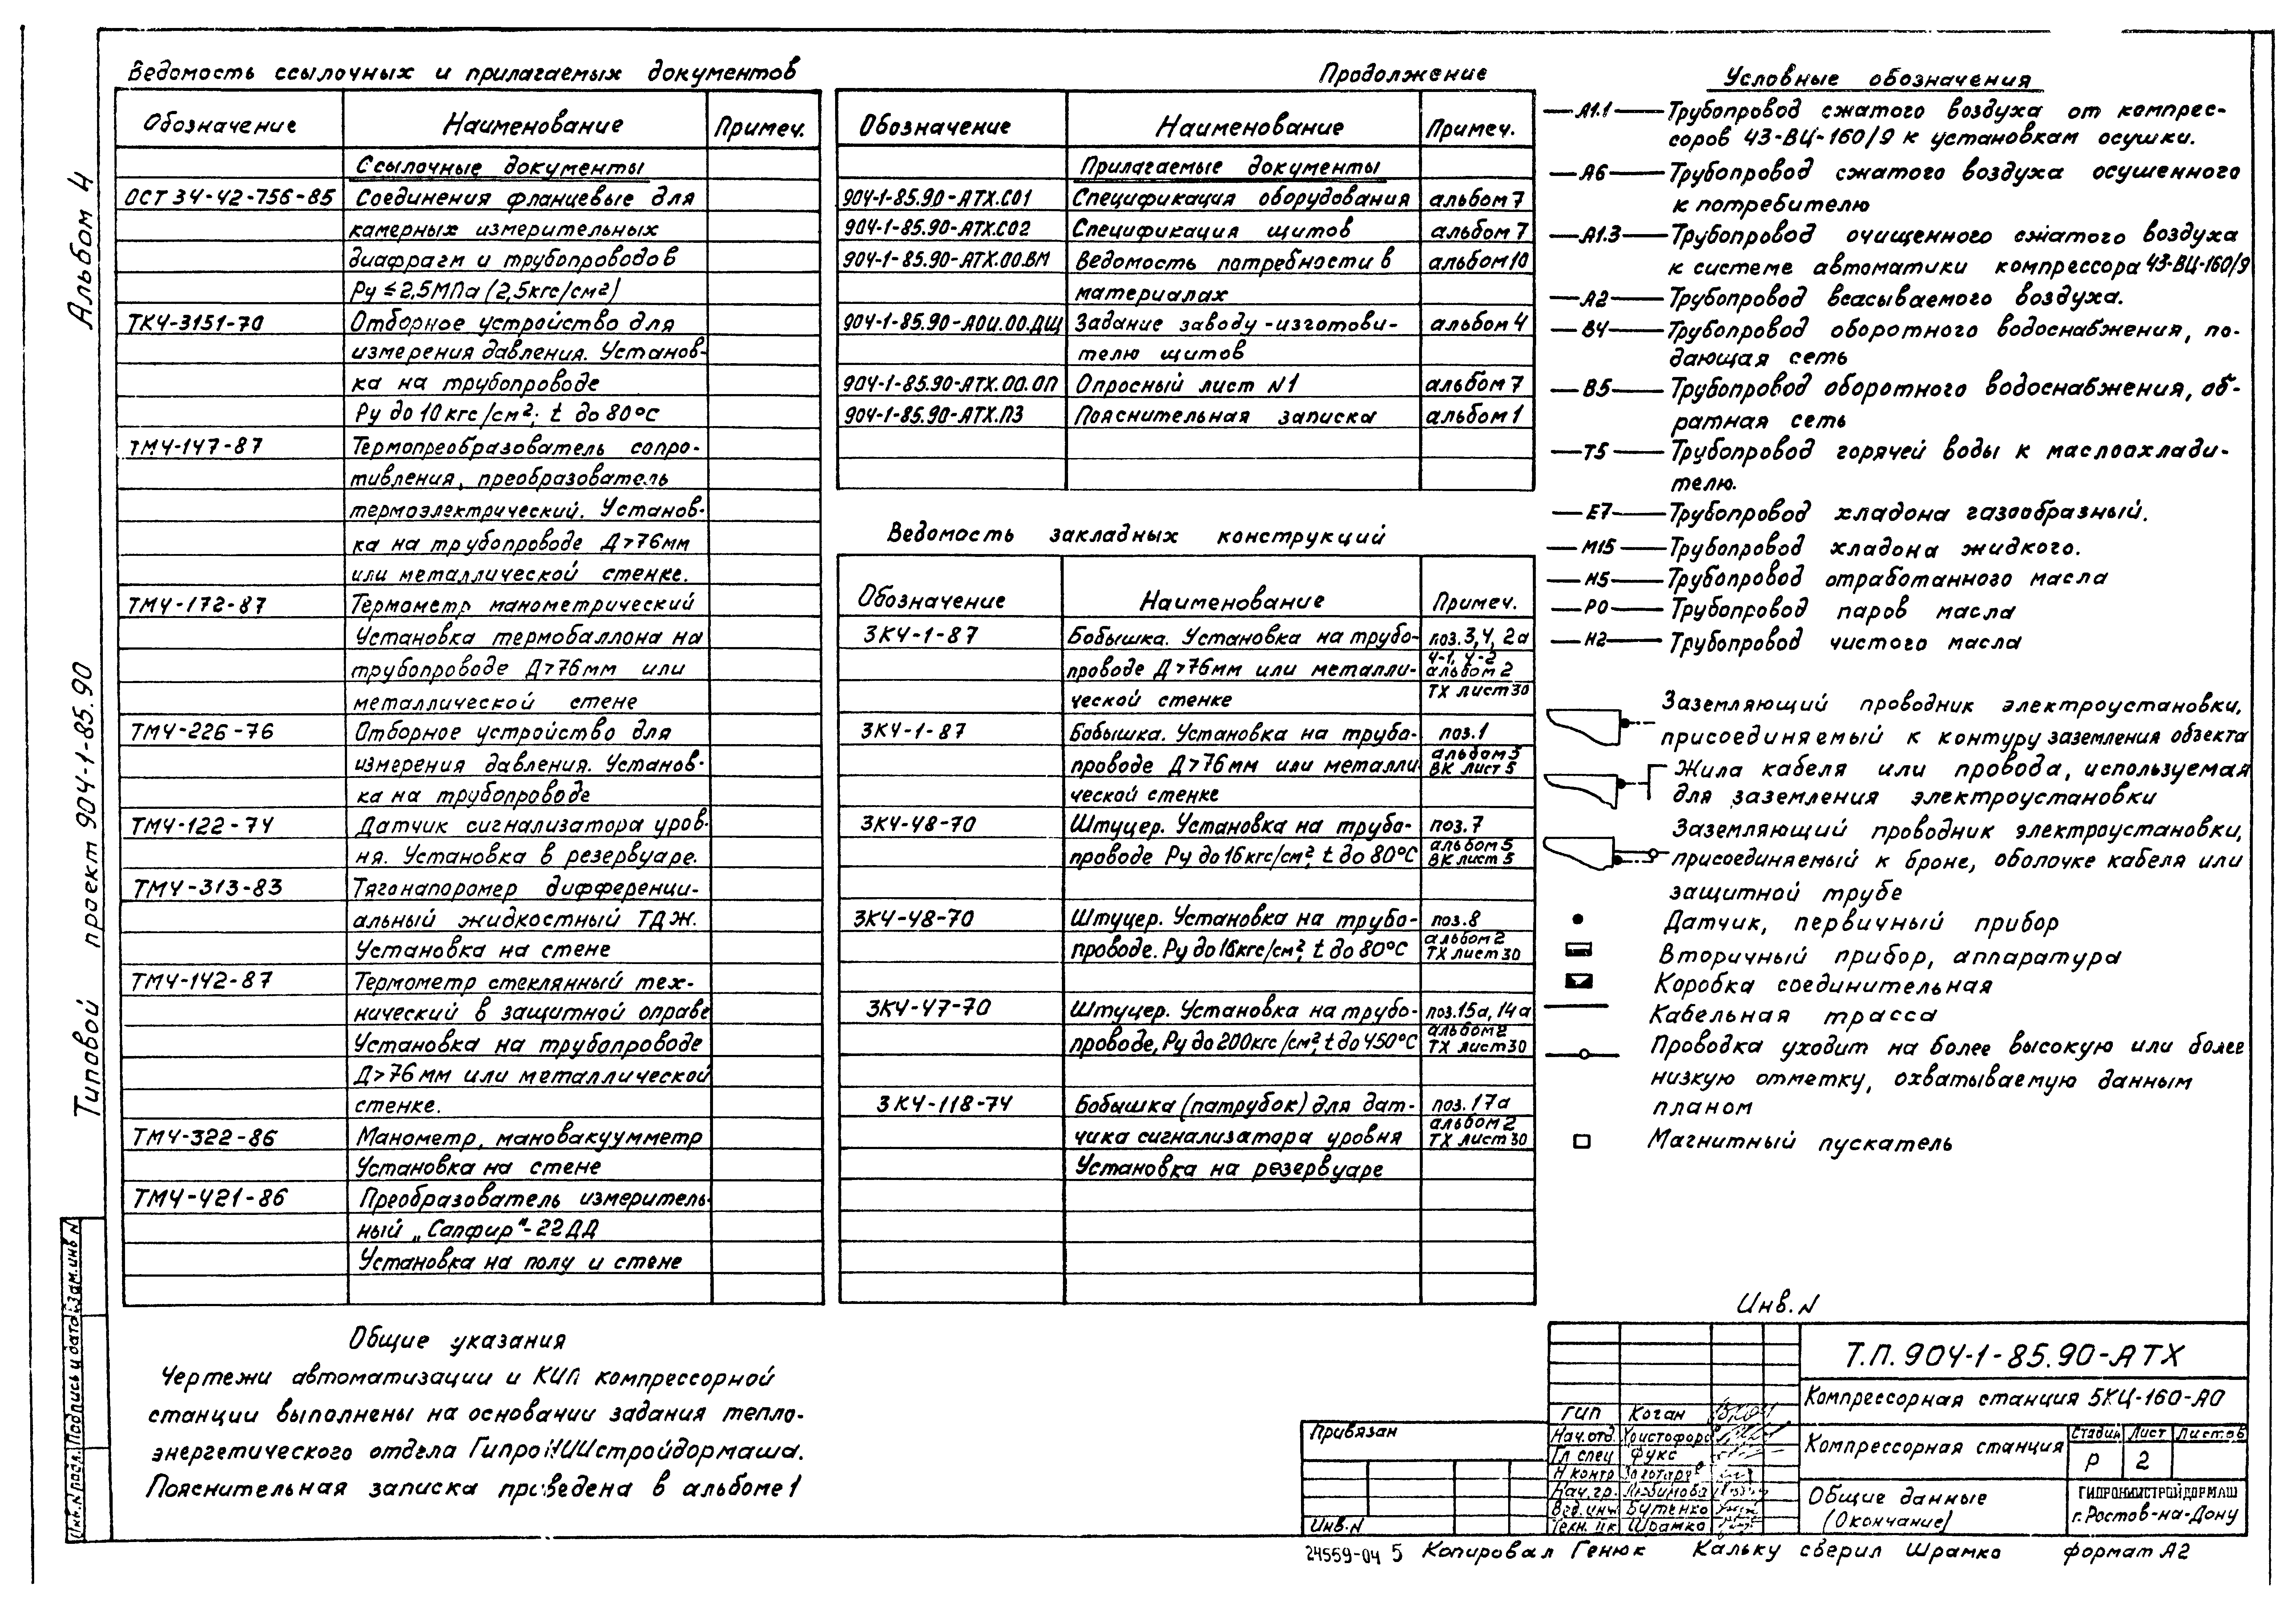 Альбом 4
Типовой проект 904-1-85.90
Ведомость ссылочных и прилагаемых документов
Обозначение Наименование Примеч.
Ссылочные документы
ОСТ 34-42-756-85 Соединения фланцевые для
камерных измерительных
диафрагм и трубопроводов
Ру ≤ 2,5МПа (2,5кгс/см²)
ТКЧ-3151-70 Отборное устройство для
измерения давления. Установ-
ка на трубопроводе
Ру до 10 кгс/см²; t до 80°С
ТМЧ-147-87 Термопреобразователь сопро-
тивления, преобразователь
термоэлектрический. Установ-
ка на трубопроводе Д>76мм
или металлической стенке.
ТМЧ-172-87 Термометр манометрический
Установка термобаллона на
трубопроводе Д>76мм или
металлической стене
ТМЧ-226-76 Отборное устройство для
измерения давления. Установ-
ка на трубопроводе
ТМЧ-122-74 Датчик сигнализатора уров-
ня. Установка в резервуаре.
ТМЧ-313-83 Тягонапоромер дифференци-
альный жидкостный ТДЖ.
Установка на стене
ТМЧ-142-87 Термометр стеклянный тех-
нический в защитной оправе
Установка на трубопроводе
Д>76мм или металлической
стенке.
ТМЧ-322-86 Манометр, мановакуумметр
Установка на стене
ТМЧ-421-86 Преобразователь измеритель-
ный „Сапфир"-22ДД
Установка на полу и стене
Общие указания
Чертежи автоматизации и КИП компрессорной
станции выполнены на основании задания тепло-
энергетического отдела ГипроНИИстройдормаша.
Пояснительная записка приведена в альбоме 1
Продолжение
Обозначение Наименование Примеч.
Прилагаемые документы
904-1-85.90-АТХ.СО1 Спецификация оборудования альбом 7
904-1-85.90-АТХ.СО2 Спецификация щитов альбом 7
904-1-85.90-АТХ.00.ВМ Ведомость потребности в альбом 10
материалах
904-1-85.90-АОИ.00.ДЩ Задание заводу-изготови- альбом 4
телю щитов
904-1-85.90-АТХ.00.ОЛ Опросный лист N1 альбом 7
904-1-85.90-АТХ.ПЗ Пояснительная записка альбом 1
Ведомость закладных конструкций
Обозначение Наименование Примеч.
ЗКЧ-1-87 Бобышка. Установка на трубо- поз.3,4, 2а
проводе Д>76мм или металли- 4-1, 4-2 альбом 2
ческой стенке ТХ лист 30
ЗКЧ-1-87 Бобышка. Установка на трубо- поз.1
проводе Д>76мм или металли альбом 5 ВК лист 5
ческой стенке
ЗКЧ-48-70 Штуцер. Установка на трубо- поз.7
проводе Ру до 16кгс/см², t до 80°С альбом 5 ВК лист 5
ЗКЧ-48-70 Штуцер. Установка на трубо- поз.8
проводе. Ру до 16кгс/см², t до 80°С альбом 2 ТХ лист 30
ЗКЧ-47-70 Штуцер. Установка на трубо- поз.15а, 14а
проводе, Ру до 200кгс/см², t до 450°С альбом 2 ТХ лист 30
ЗКЧ-118-74 Бобышка (патрубок) для дат- поз. 17а
чика сигнализатора уровня альбом 2 ТХ лист 30
Установка на резервуаре
Условные обозначения
А1.1 Трубопровод сжатого воздуха от компрес-
соров 43-ВЦ-160/9 к установкам осушки.
А6 Трубопровод сжатого воздуха осушенного
к потребителю
А1.3 Трубопровод очищенного сжатого воздуха
к системе автоматики компрессора 43-ВЦ-160/9
А2 Трубопровод всасываемого воздуха.
В4 Трубопровод оборотного водоснабжения, по-
дающая сеть
В5 Трубопровод оборотного водоснабжения, об-
ратная сеть
Т5 Трубопровод горячей воды к маслоохлади-
телю.
Е7 Трубопровод хладона газообразный.
М15 Трубопровод хладона жидкого.
Н5 Трубопровод отработанного масла
РО Трубопровод паров масла
Н2 Трубопровод чистого масла
Заземляющий проводник электроустановки,
присоединяемый к контуру заземления объекта
Жила кабеля или провода, используемая
для заземления электроустановки
Заземляющий проводник электроустановки,
присоединяемый к броне, оболочке кабеля или
защитной трубе
Датчик, первичный прибор
Вторичный прибор, аппаратура
Коробка соединительная
Кабельная трасса
Проводка уходит на более высокую или более
низкую отметку, охватываемую данным
планом
Магнитный пускатель
Инв. N
Т.П. 904-1-85.90-АТХ
Компрессорная станция 5КЦ-160-АО
ГИП Коган
Нач.отд. Христофоров
Гл спец Фукс
Н контр
Нач. гр. Любимова
Вед. инж Бутенко
Шрамко
Компрессорная станция
Стадия Лист Листов
Р 2
Общие данные
(Окончание)
ГИПРОНИИСТРОЙДОРМАШ
г. Ростов-на-Дону
Привязан
Инв. N
Инв. N подл. Подпись и дата Взам. инв N
24559-04 5 Копировал Генюк Кальку сверил Шрамко формат А2